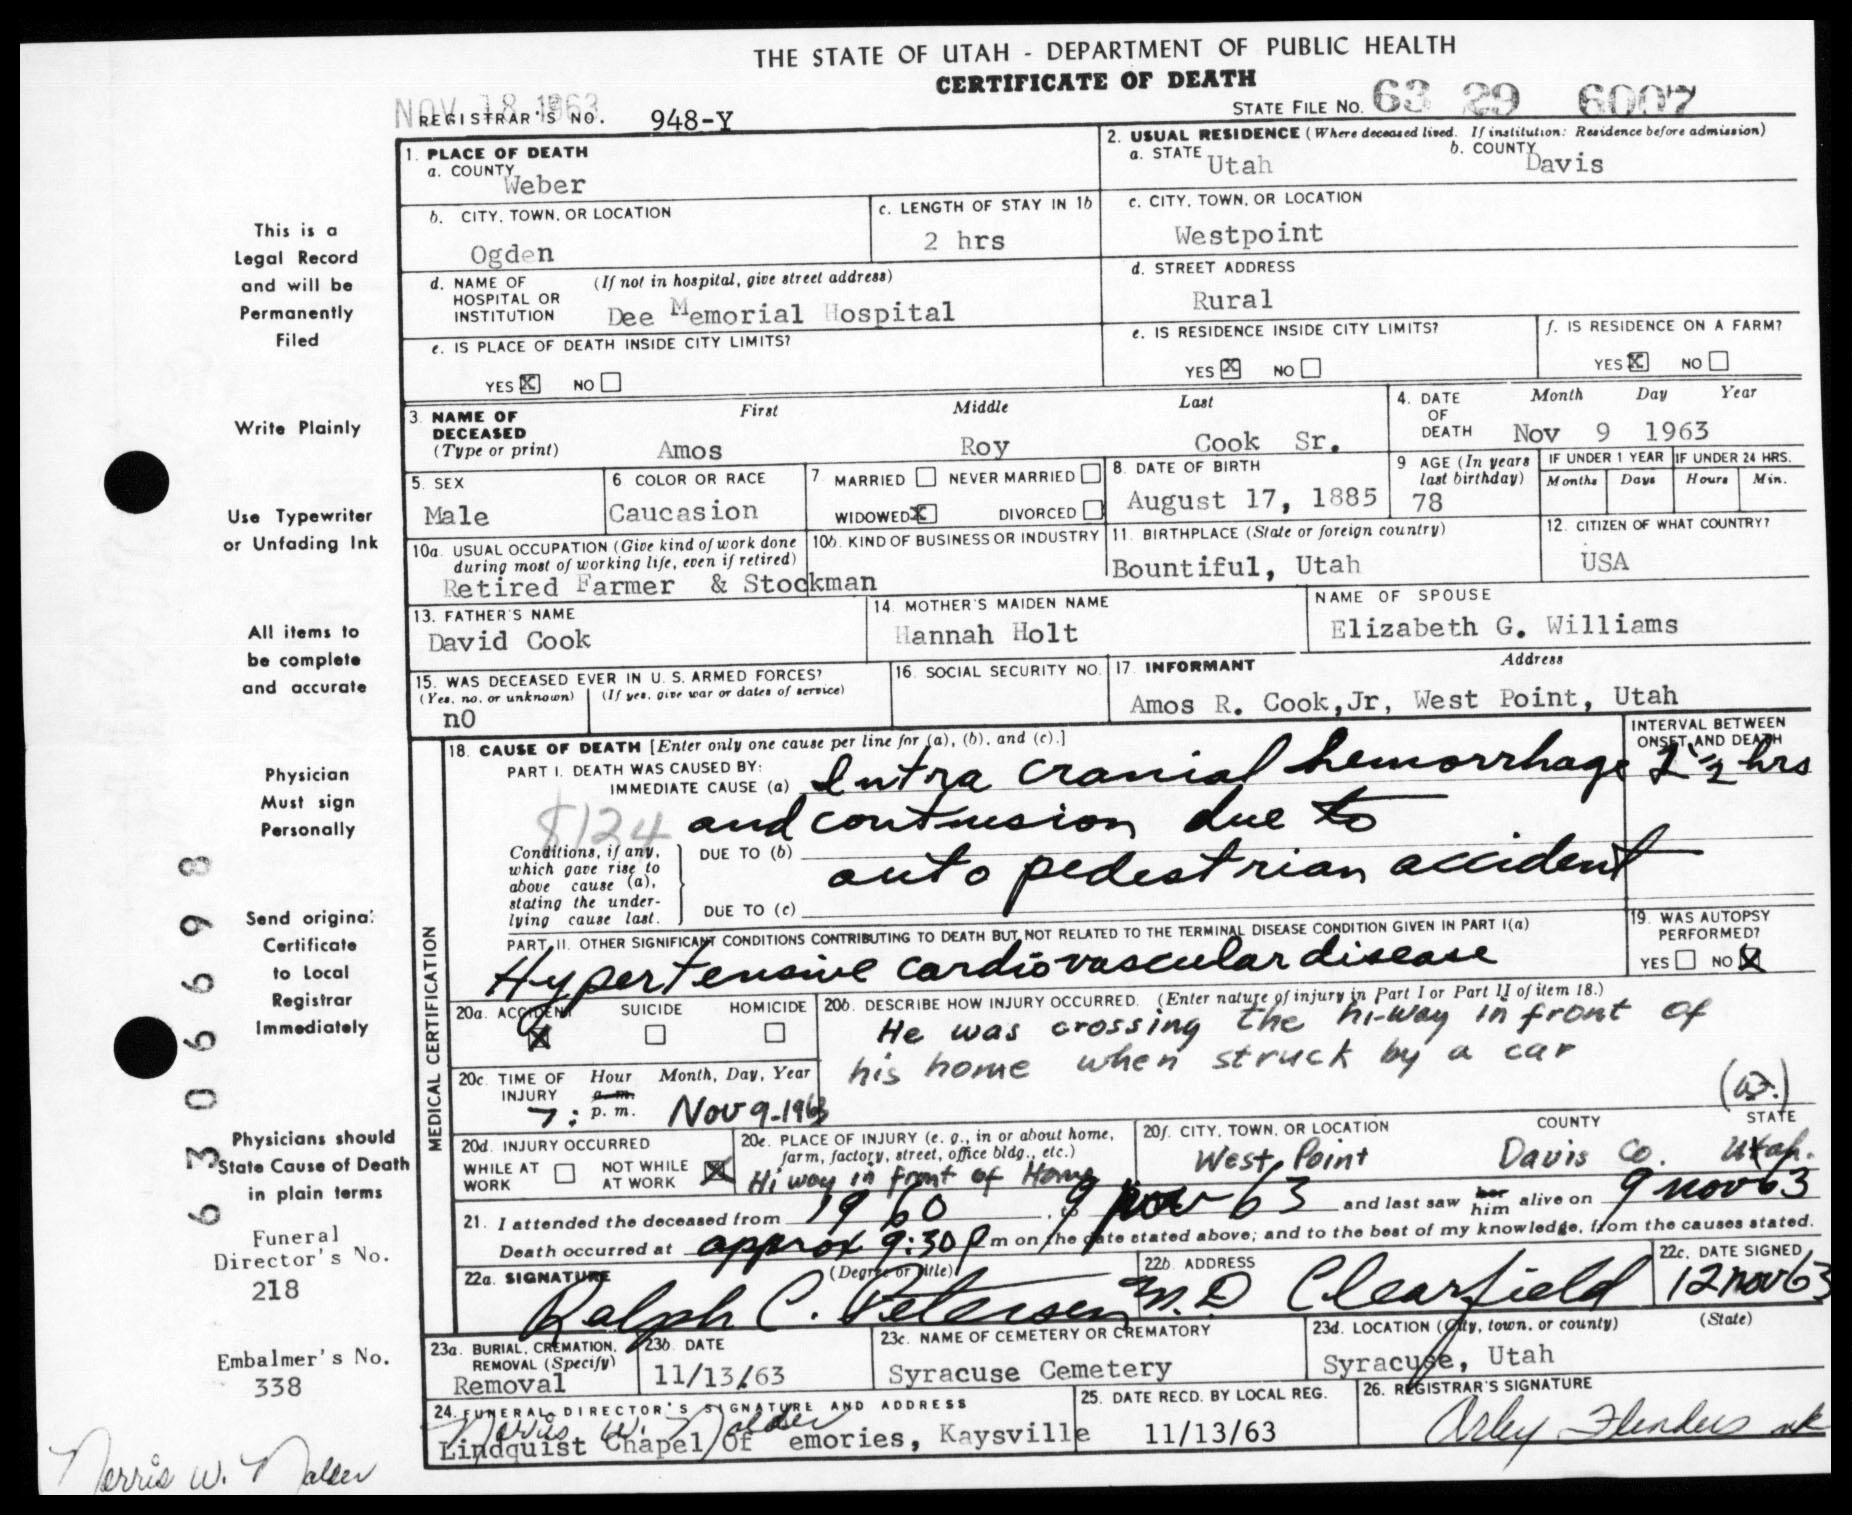 THE STATE OF UTAH - DEPARTMENT OF PUBLIC HEALTH
CERTIFICATE OF DEATH
NOV 18 1963
REGISTRAR'S NO. 948-Y
STATE FILE NO. 63 29 6007
This is a
Legal Record
and will be
Permanently
Filed
Write Plainly
Use Typewriter
or Unfading Ink
All items to
be complete
and accurate
Physician
Must sign
Personally
Send original
Certificate
to Local
Registrar
Immediately
Physicians should
State Cause of Death
in plain terms
Funeral
Director's No.
218
Embalmer's No.
338
Norris W. Nalder
6 3 0 6 6 9 8
1. PLACE OF DEATH
a. COUNTY
Weber
2. USUAL RESIDENCE (Where deceased lived. If institution: Residence before admission)
a. STATE Utah b. COUNTY Davis
b. CITY, TOWN, OR LOCATION
Ogden
c. LENGTH OF STAY IN 1b
2 hrs
c. CITY, TOWN, OR LOCATION
Westpoint
d. NAME OF HOSPITAL OR INSTITUTION (If not in hospital, give street address)
Dee Memorial Hospital
d. STREET ADDRESS
Rural
e. IS PLACE OF DEATH INSIDE CITY LIMITS?
YES X NO
e. IS RESIDENCE INSIDE CITY LIMITS?
YES X NO
f. IS RESIDENCE ON A FARM?
YES X NO
3. NAME OF DECEASED (Type or print) First Middle Last
Amos Roy Cook Sr.
4. DATE OF DEATH Month Day Year
Nov 9 1963
5. SEX
Male
6 COLOR OR RACE
Caucasion
7 MARRIED NEVER MARRIED
WIDOWED X DIVORCED
8. DATE OF BIRTH
August 17, 1885
9 AGE (In years last birthday)
78
IF UNDER 1 YEAR IF UNDER 24 HRS.
Months Days Hours Min.
10a. USUAL OCCUPATION (Give kind of work done during most of working life, even if retired)
10b. KIND OF BUSINESS OR INDUSTRY
Retired Farmer & Stockman
11. BIRTHPLACE (State or foreign country)
Bountiful, Utah
12. CITIZEN OF WHAT COUNTRY?
USA
13. FATHER'S NAME
David Cook
14. MOTHER'S MAIDEN NAME
Hannah Holt
NAME OF SPOUSE
Elizabeth G. Williams
15. WAS DECEASED EVER IN U. S. ARMED FORCES?
(Yes, no, or unknown) (If yes, give war or dates of service)
nO
16. SOCIAL SECURITY NO.
17. INFORMANT Address
Amos R. Cook,Jr, West Point, Utah
MEDICAL CERTIFICATION
18. CAUSE OF DEATH [Enter only one cause per line for (a), (b), and (c).]
INTERVAL BETWEEN ONSET AND DEATH
PART I. DEATH WAS CAUSED BY:
IMMEDIATE CAUSE (a) Intra cranial hemorrhage 2 1/2 hrs
8124
and contusion due to
Conditions, if any, which gave rise to above cause (a), stating the underlying cause last.
DUE TO (b)
auto pedestrian accident
DUE TO (c)
PART II. OTHER SIGNIFICANT CONDITIONS CONTRIBUTING TO DEATH BUT NOT RELATED TO THE TERMINAL DISEASE CONDITION GIVEN IN PART I(a)
Hypertensive cardiovascular disease
19. WAS AUTOPSY PERFORMED?
YES NO X
20a. ACCIDENT SUICIDE HOMICIDE
X
20b. DESCRIBE HOW INJURY OCCURRED. (Enter nature of injury in Part I or Part II of item 18.)
He was crossing the hi-way in front of
his home when struck by a car
20c. TIME OF INJURY Hour Month, Day, Year
a.m.
7: p.m. Nov 9-1963
20d. INJURY OCCURRED
WHILE AT WORK NOT WHILE AT WORK X
20e. PLACE OF INJURY (e. g., in or about home, farm, factory, street, office bldg., etc.)
Hi way in front of Home
20f. CITY, TOWN, OR LOCATION COUNTY STATE
West Point Davis Co. Utah.
21. I attended the deceased from 1960, to 9 Nov 63 and last saw her him alive on 9 nov 63
Death occurred at approx 9:30 P m on the date stated above; and to the best of my knowledge, from the causes stated.
22a. SIGNATURE (Degree or title)
Ralph C. Petersen M.D
22b. ADDRESS
Clearfield
22c. DATE SIGNED
12 nov 63
23a. BURIAL, CREMATION, REMOVAL (Specify)
Removal
23b. DATE
11/13/63
23c. NAME OF CEMETERY OR CREMATORY
Syracuse Cemetery
23d. LOCATION (City, town, or county) (State)
Syracuse, Utah
24. FUNERAL DIRECTOR'S SIGNATURE AND ADDRESS
Norris W. Nalder
Lindquist Chapel Of emories, Kaysville
25. DATE RECD. BY LOCAL REG.
11/13/63
26. REGISTRAR'S SIGNATURE